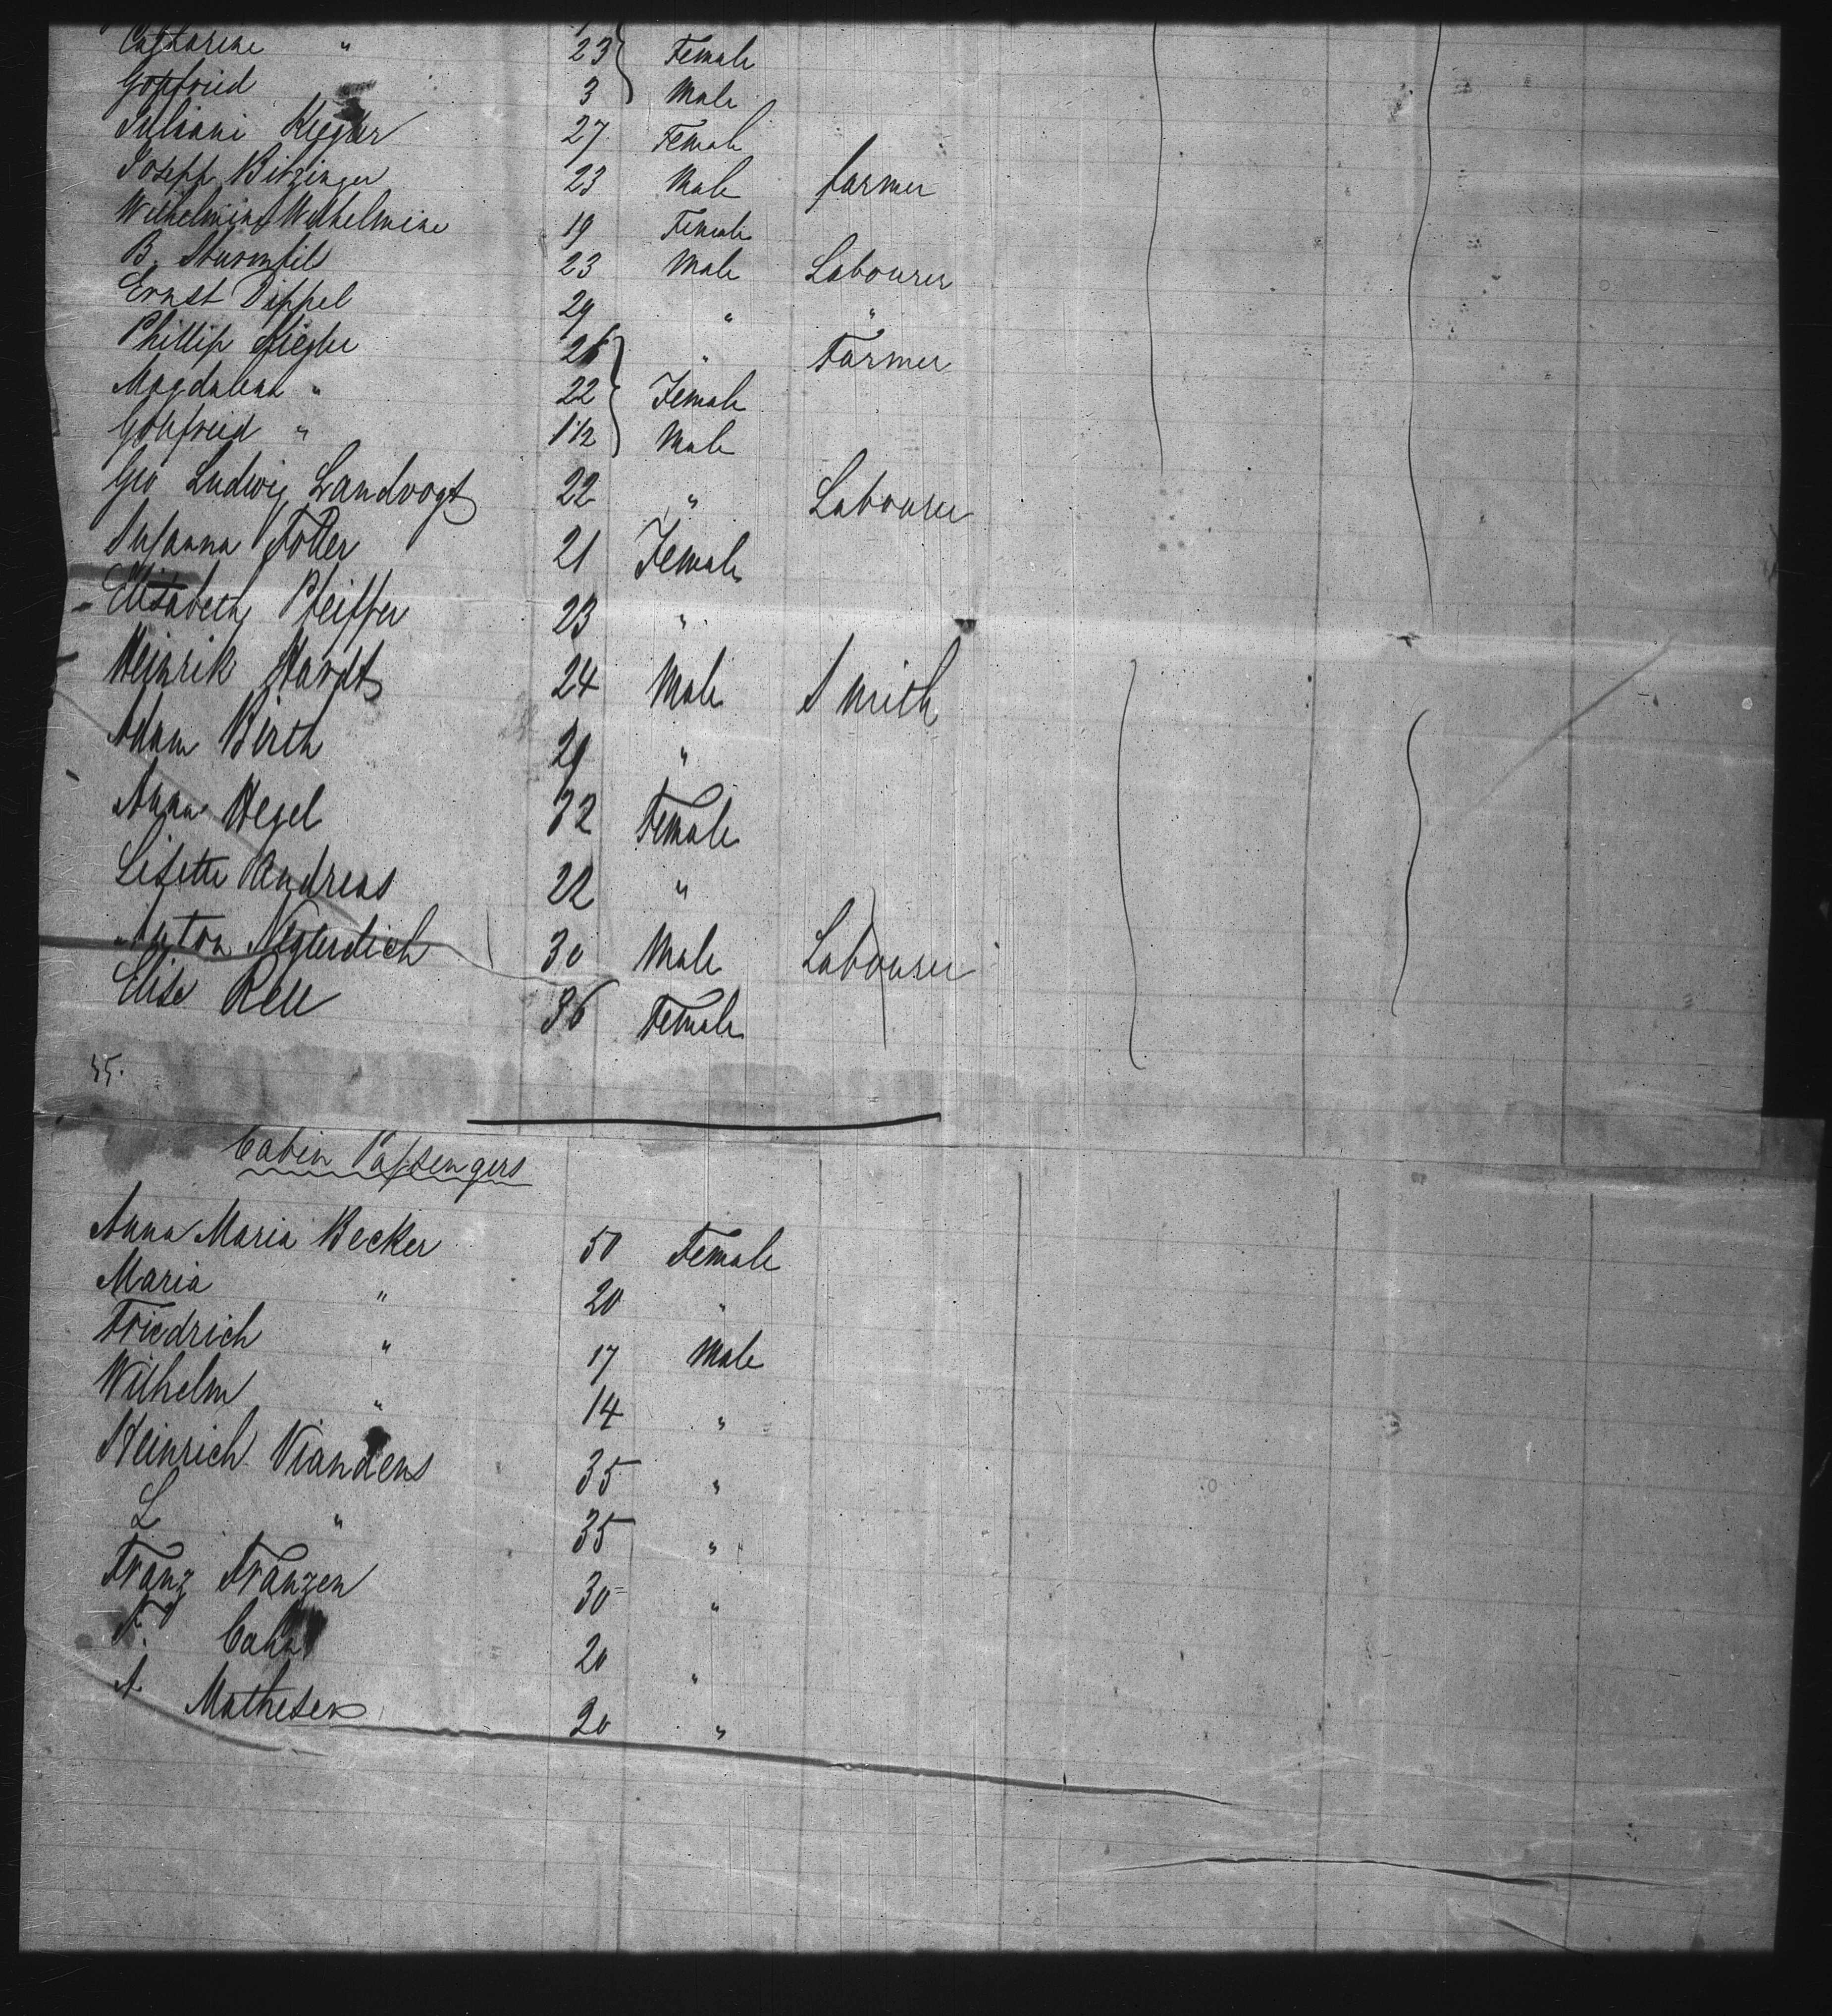 Catharine " 23 Female
Gottfried 3 Male
Juliani Kiegler 27 Female
Joseph Bitzinger 23 Male farmer
Wilhelmine Wilhelmine 19 Female
B. Sturmfils 23 Male Labourer
Ernst Dippel 29 " "
Phillip Kiegler 26 " Farmer
Magdalena " 22 Female
Gottfried " 1 1/2 Male
Geo Ludwig Landvogt 22 " Labourer
Susanna 21 Female
Elisabeth Pfeiffer 23 "
Heinrik Hardt 24 Male Smith
Adam Birth 29 "
Anna Hegel 32 Female
Lisette Andreas 22 "
Anton 30 Male Labourer
Elise Rell 36 Female
Cabin Passengers
Anna Maria Becker 50 Female
Maria " 20 "
Friedrich " 17 Male
Wilhelm " 14 "
Heinrich Viandens 35 "
L " 35 "
Franz Franzen 30 "
F. 20 "
A. Mathesen 20 "